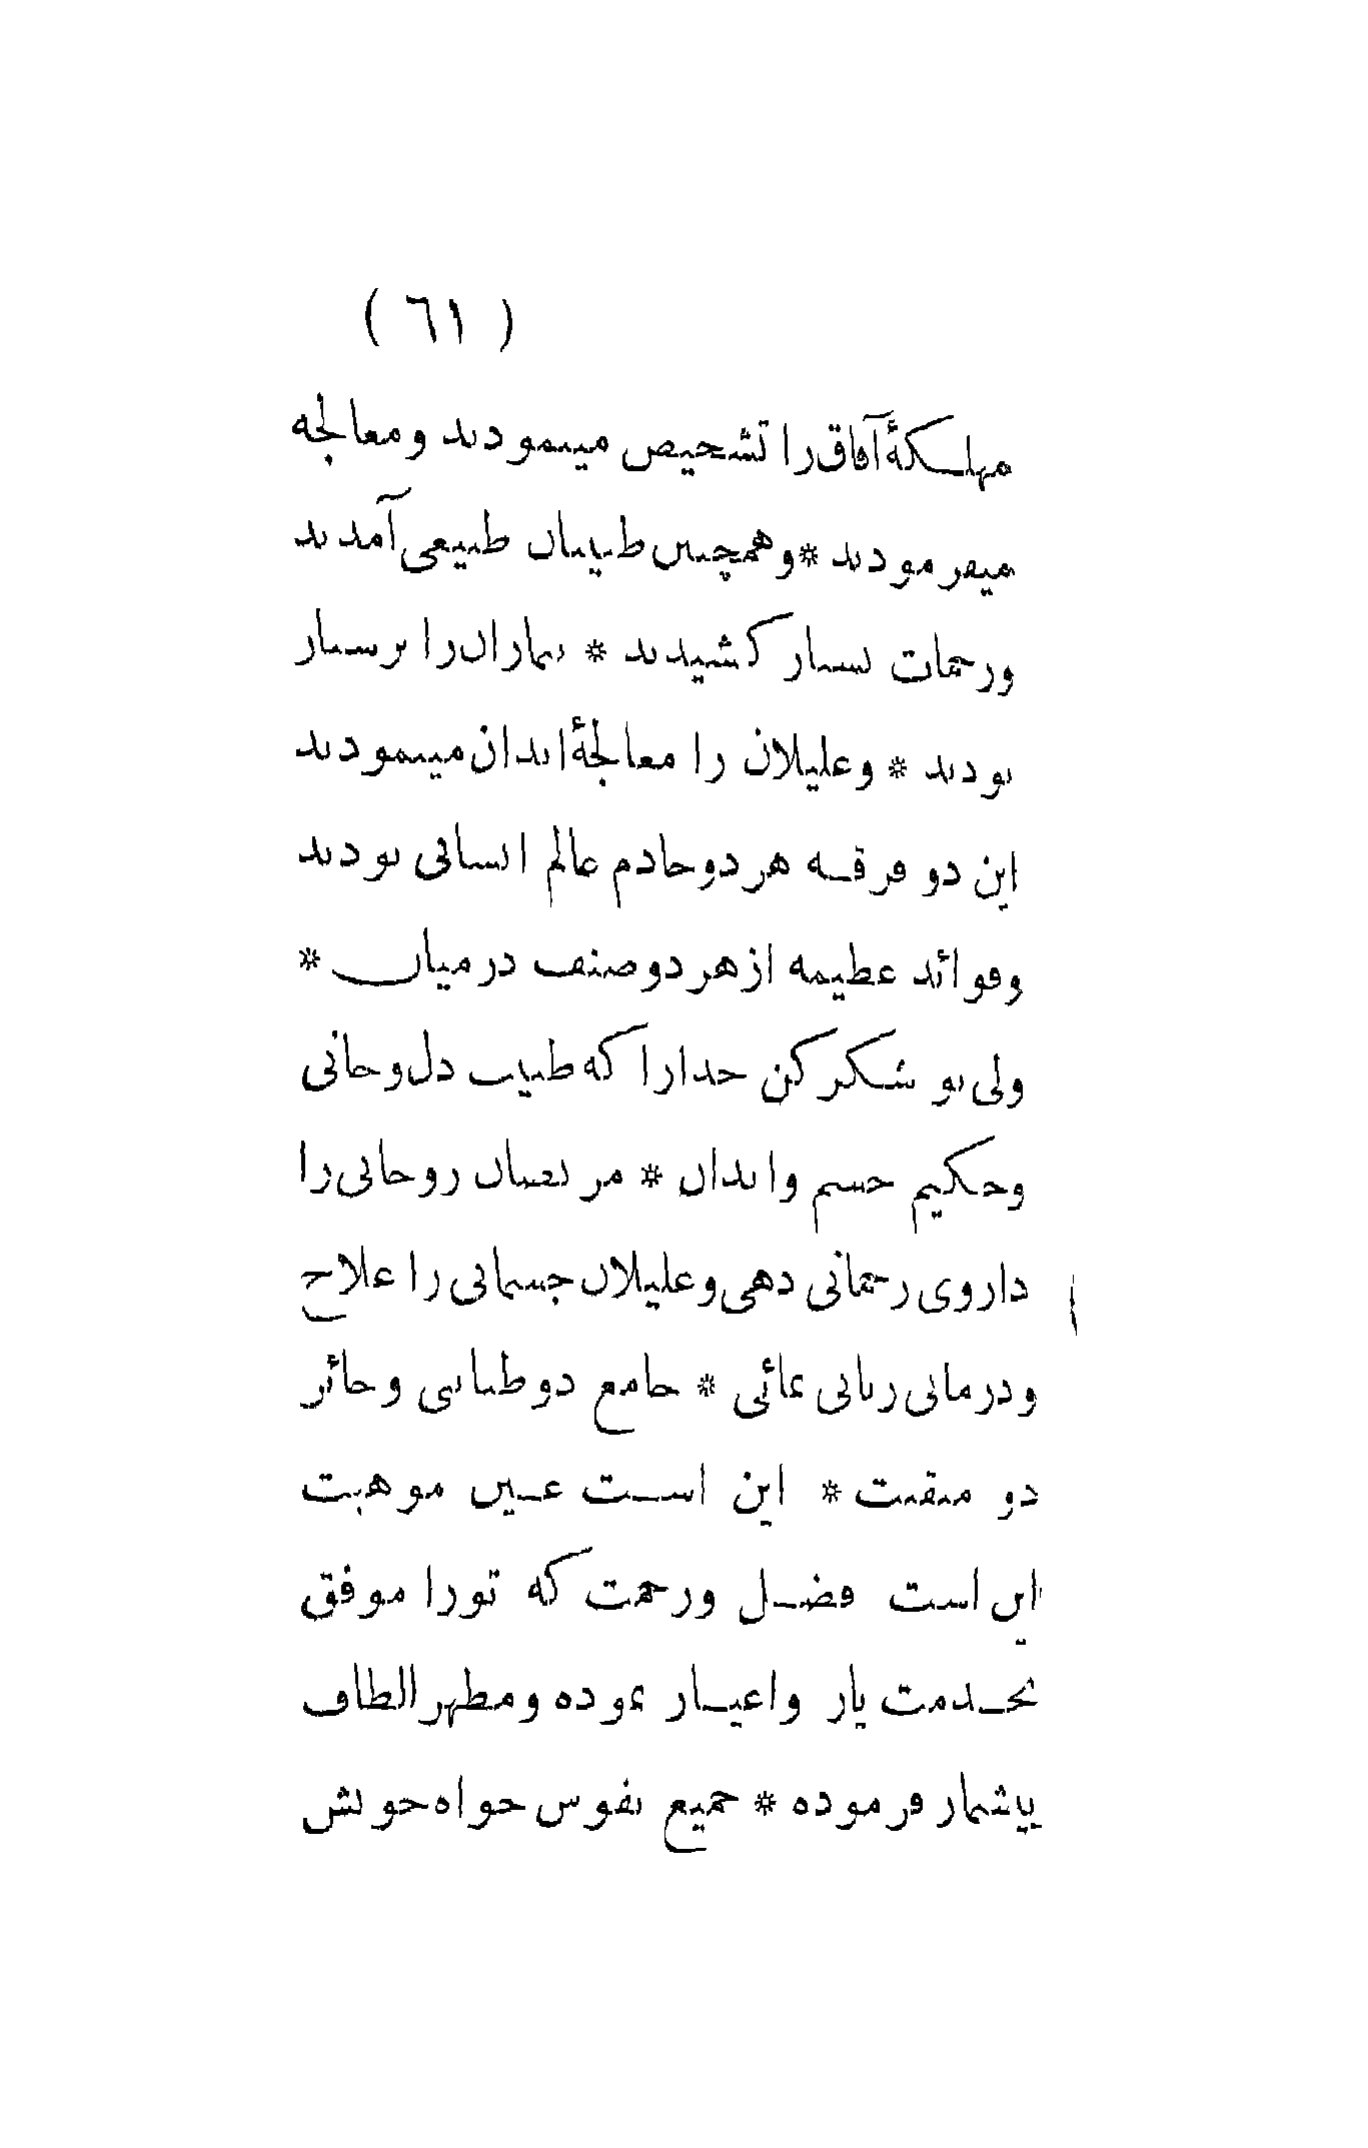 ( ٦١ )
مهلکهٔ آفاق را تشخیص مینمودند ومعالجه
میفرمودند * وهمچنین طبیبان طبیعی آمدند
وزحمات بسیار کشیدند * بیماران را پرستار
بودند * وعلیلان را معالجهٔ ابدان مینمودند
این دو فرقه هر دو خادم عالم انسانی بودند
وفوائد عظیمه از هر دو صنف در میان *
ولی تو شکر کن خدارا که طبیب دل وجانی
وحکیم جسم وابدان * مریضان روحانی را
داروی رحمانی دهی وعلیلان جسمانی را علاج
ودرمانی ربانی نمائی * جامع دو طبابتی وحائز
دو منقبت * این است عین موهبت
این است فضل ورحمت که تورا موفق
بخدمت یار واغیار نموده ومظهر الطاف
بیشمار فرموده * جمیع نفوس خواه خویش